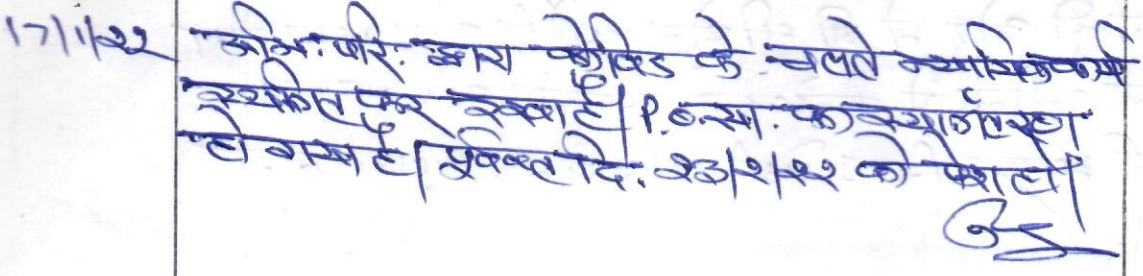 17/1/22 अभि. परि. द्वारा कोविड के चलते न्यायिक कार्य
स्थगित कर रखा है। P.O. सा. का स्थानांतरण
हो गया है। पूर्ववत दि. 23/2/22 को पेश हो।